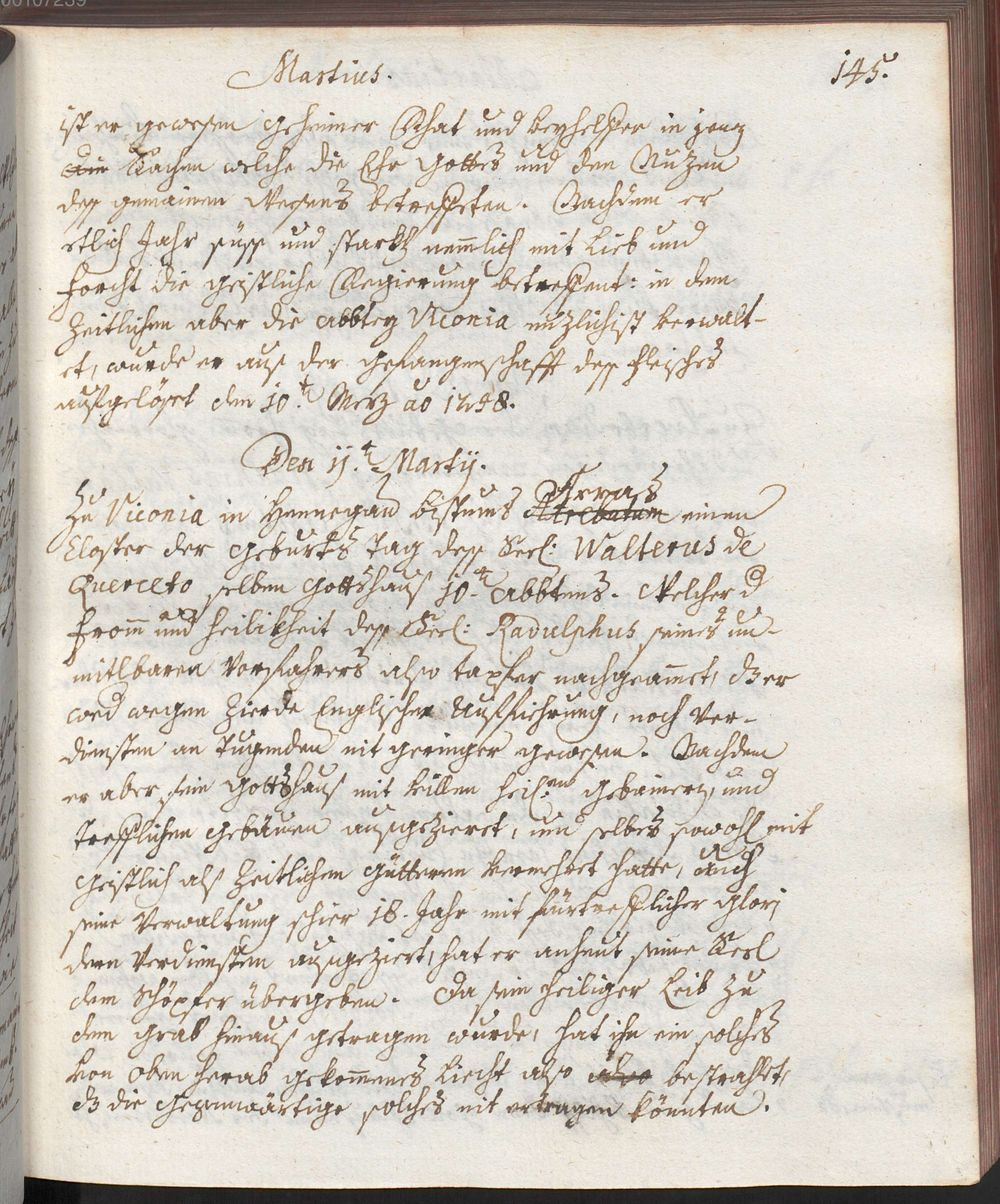 00107239
Martius.
145.
ist er gewesen geheimer Rhat und beyhelffer in jenen
die Sachen welche die Ehr Gottes und den Nuzen
dess gemainen Wesens betreffeten. Nachdem er
etlich Jahr süss und starkh nemmlich mit Lieb und
forcht die geistliche Regierung betreffent: in dem
Zeitlichen aber die Abbtey Viconia nuzlichist verwalt-
et, wurde er aus der gefangenschafft dess fleisches
aussgelöset den 10.t Merz ao 1298.
Den 11.t Martij.
Zu Viconia in Hennegau bistums Arras Atrebatum einem
Closter der geburths Tag dess Seel: Walterus de
Querceto selben Gottshauss 10.t Abbtens. Welcher d
fromm und heiligkheit dess Seel: Radulphus seines un-
mitlbaren Vorfahrers also tapfer nachgeammet, dz er
wed wegen Zierde Englischer Aufführung, noch Ver-
diensten an Tugenden nit geringer gewesen. Nachdem
er aber sein Gottshaus mit villen heil:en gebainern, und
trefflichen gebäuen aussgezieret, und selbes sowohl mit
geistlich als Zeitlichen güttern vermehret hatte, auch
seine Verwaltung schier 18. Jahr mit fürtrefflicher glori
deren Verdiensten aussgeziert, hat er anheut seine Seel
dem Schöpfer übergeben. Da sein heiliger Leib zu
dem grab hinaus getragen wurde, hat ihn ein solches
von oben herab gekommenes Liecht also also bestrahlet,
dz die gegenwärtige solches nit ertragen könnten.